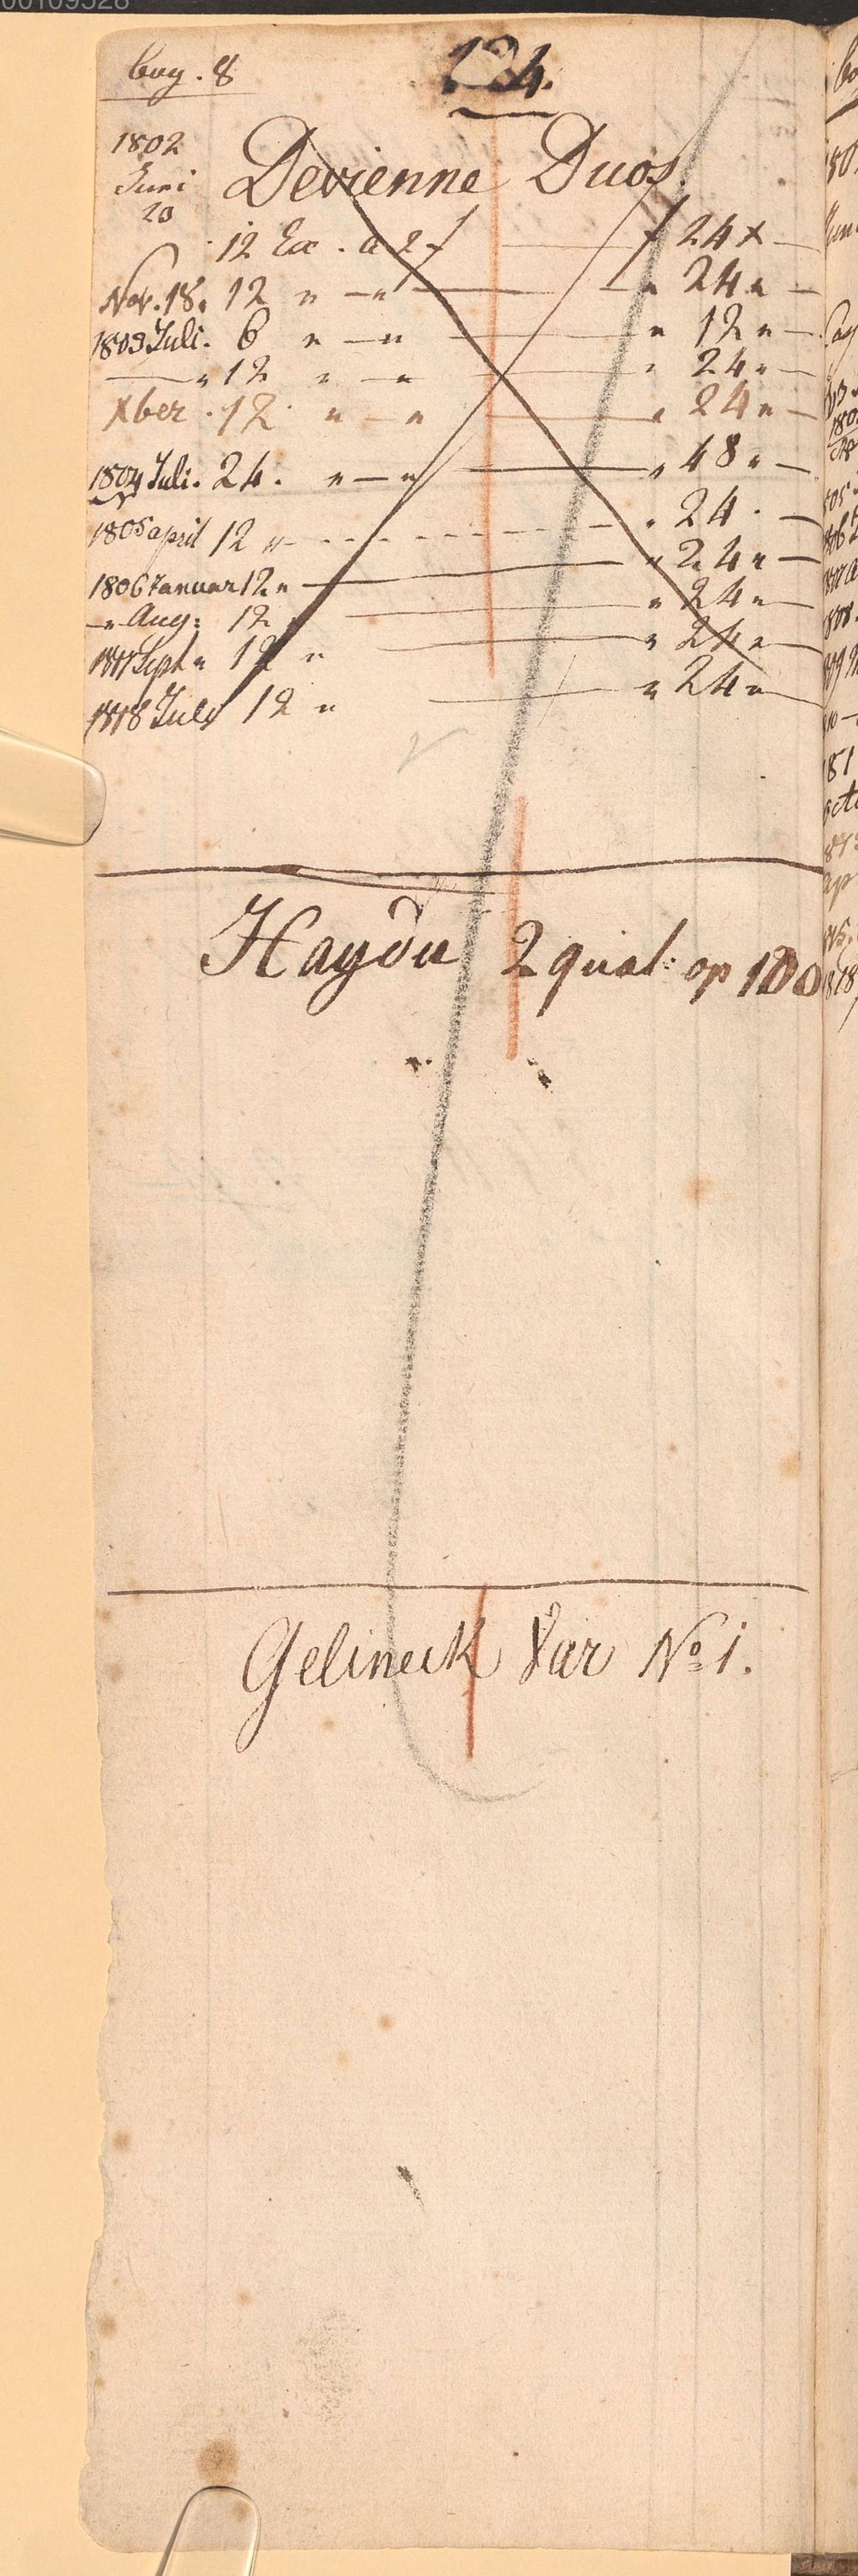 bog. 8
124.
1802
Juni
20
Devienne Duos.
12 Ex. a 2 f f 24 x
Nov. 18. 12 " — " " 24 "
1803 Juli. 6 " — " " 12 "
— " 12 " — " " 24 "
Xber. 12 " — " " 24 "
1804 Juli. 24. " — " " 48 "
1805 april 12 " " 24.
1806 Januar 12 " " 24 "
— " Aug: 12 " " 24 "
Sept " 12 " " 24 "
1818 July 12 " " 24 "
Haydn 2 quat: op 100
Gelineck Var No. 1.